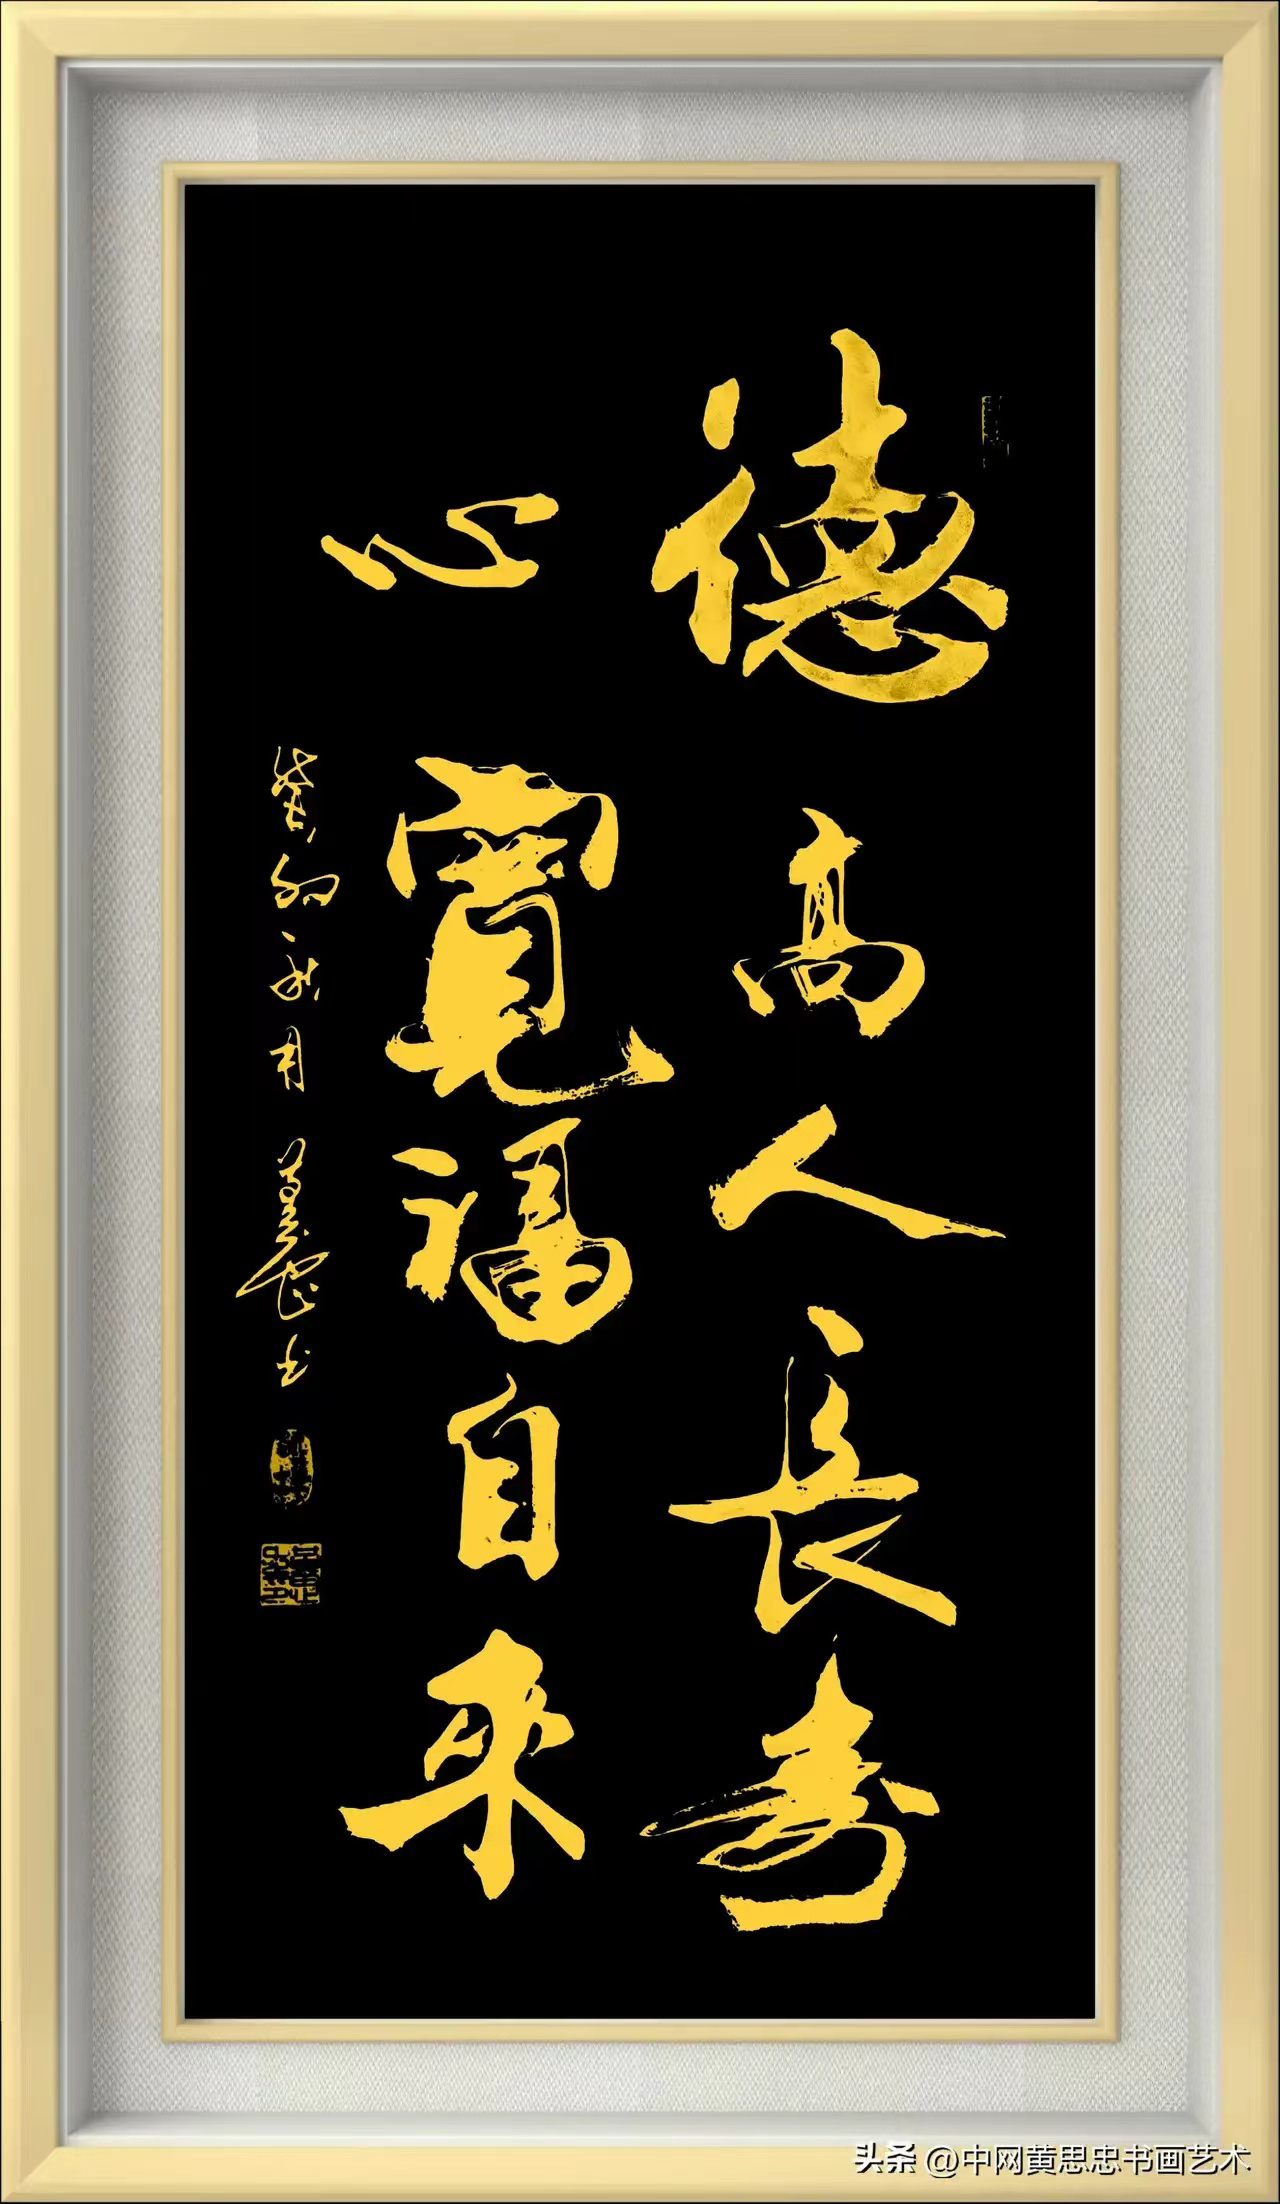 德高人長壽
心寬福自来
癸卯秋月黄思忠书
头条 @中网黄思忠书画艺术